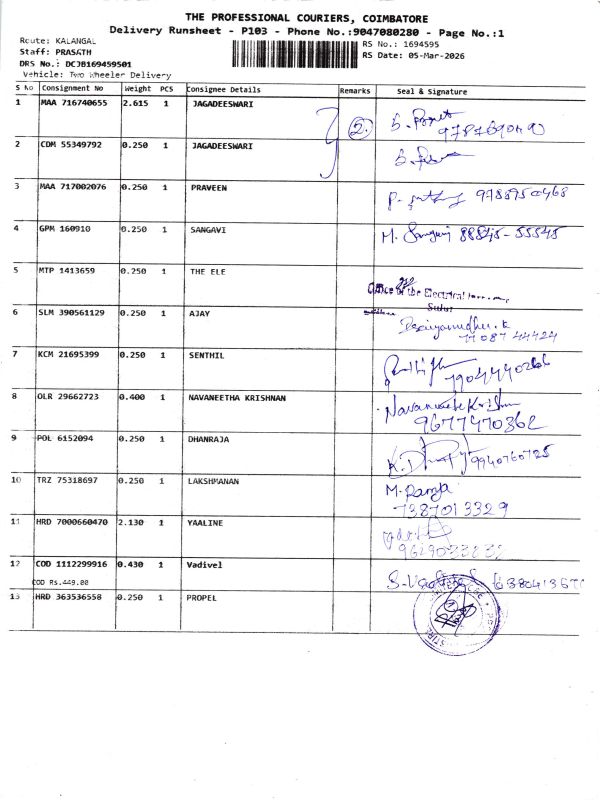 THE PROFESSIONAL COURIERS, COIMBATORE
Delivery Runsheet - P103 - Phone No.:9047080280 - Page No.:1
Route: KALANGAL
RS No.: 1694595
Staff: PRASATH
RS Date: 05-Mar-2026
DRS No.: DCJB169459501
Vehicle: Two Wheeler Delivery
S No Consignment No Weight PCS Consignee Details Remarks Seal & Signature
1 MAA 716740655 2.615 1 JAGADEESWARI 2.
2 CDM 55349792 0.250 1 JAGADEESWARI
3 MAA 717002076 0.250 1 PRAVEEN 9788950468
4 GPM 160910 0.250 1 SANGAVI M. Sangavi 88845-55545
5 MTP 1413659 0.250 1 THE ELE Office of the Electrical
Sulur
6 SLM 390561129 0.250 1 AJAY
77087 44424
7 KCM 21695399 0.250 1 SENTHIL
8 OLR 29662723 0.400 1 NAVANEETHA KRISHNAN Navaneetha Krishnan
9677470362
9 POL 6152094 0.250 1 DHANRAJA 9940760725
10 TRZ 75318697 0.250 1 LAKSHMANAN M. Ramya
7387013329
11 HRD 7000660470 2.130 1 YAALINE
12 COD 1112299916 0.430 1 Vadivel
COD Rs.449.00
13 HRD 363536558 0.250 1 PROPEL